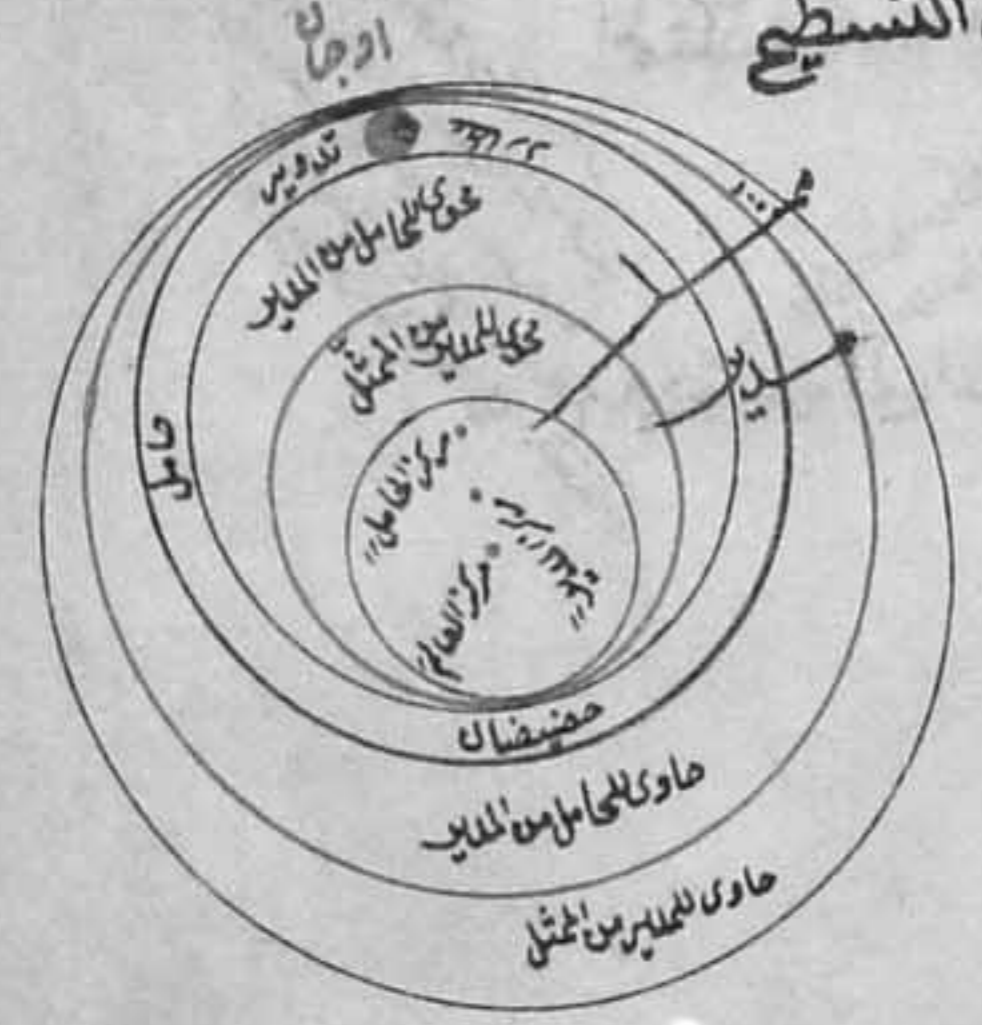 التسطيح
اوجان
تدوير
عطارد
محوى للحامل من المدير
محوى للمدير من الممثل
ممثل
مدير
حامل
مركز الحامل
مركز المدير
مركز العالم
حضيضان
حاوى للحامل من المدير
حاوى للمدير من الممثل